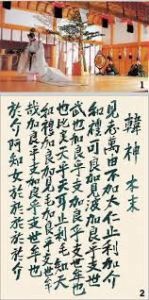 1
韓神 本末
見志萬由不加太仁止利加介
和禮可良加見波加良乎支世
武也加良乎支加良乎支世
也比良天乎天耳止利毛知天
和禮加良加見毛加良乎支世
哉加良乎支加良乎支世年也
於介阿知女於於於於於介
2